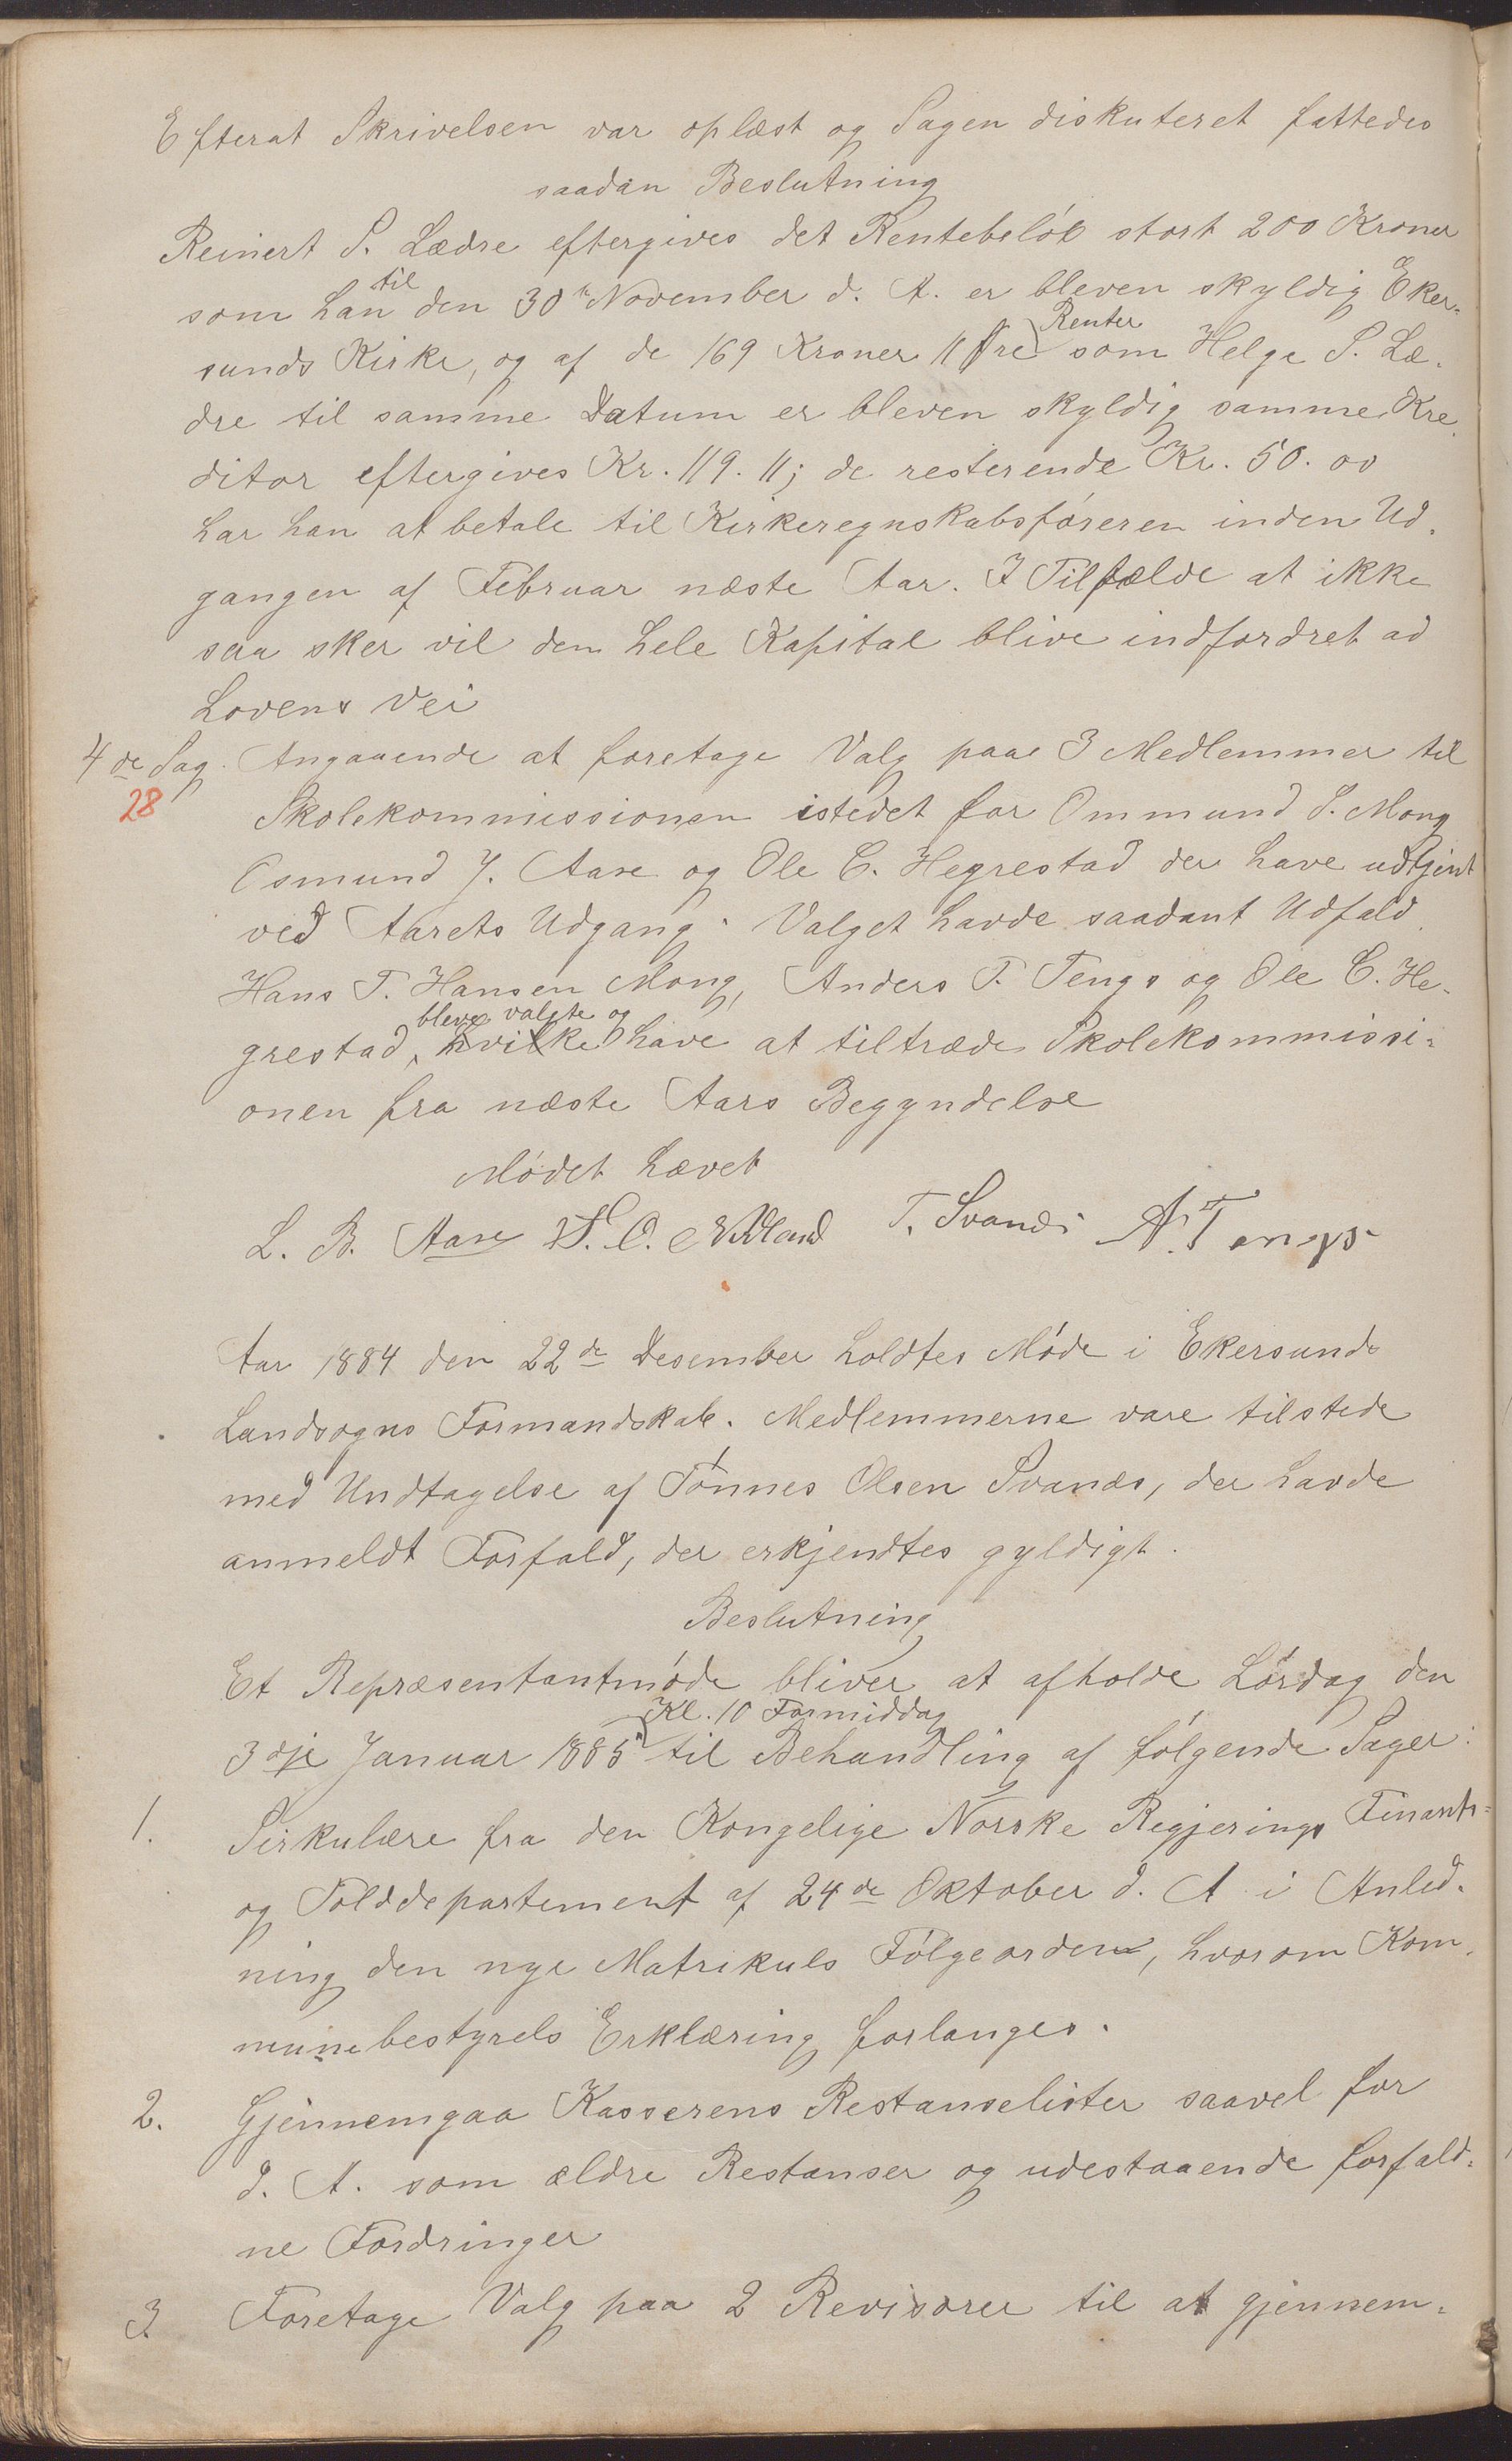 Efterat Skrivelsen var oplæst og Sagen diskuteret fattedes
saadan Beslutning
Reinert S. Lædre eftergives det Rentebeløb stort 200 Kroner
som han til den 30te November d. A. er bleven skyldig Eker-
sunds Kirke, og af de 169 Kroner 11 Øre Renter som Helge S. Læ-
dre til samme Datum er bleven skyldig samme Kre-
ditor eftergives Kr. 119. 11; de resterende Kr. 50. 00
har han at betale til Kirkeregnskabsføreren inden Ud-
gangen af Februar næste Aar. I Tilfælde at ikke
saa sker vil den hele Kapital blive indfordret ad
Lovens Vei
4de Sag. Angaaende at foretage Valg paa 3 Medlemmer til
28
Skolekommissionen istedet for Ommund S. Mong
Osmund J. Aase og Ole C. Hegrestad der have udtjent
ved Aarets Udgang. Valget havde saadant Udfald
Hans T. Hansen Mong, Anders T. Tengs og Ole C. He-
bleve valgte og
grestad, hvilke have at tiltræde Skolekommissi-
onen fra næste Aars Begyndelse
Mødet hævet
L. B. Aase O. T. Svanes A. Tengs
Aar 1884 den 22de Desember holdtes Møde i Ekersunds
Landsogns Formandskab. Medlemmerne vare tilstede
med Undtagelse af Tønnes Olsen Svanes, der havde
anmeldt Forfald, der erkjendtes gyldigt.
Beslutning
Et Repræsentantmøde bliver at afholde Lørdag den
Kl. 10 Formiddag
3dje Januar 1885 til Behandling af følgende Sager:
1. Sirkulære fra den Kongelige Norske Regjerings Finants-
og Tolddepartement af 24de Oktober d. A i Anled-
ning den nye Matrikuls Følgeorden, hvorom Kom-
munebestyrels Erklæring forlanges.
2. Gjennemgaa Kasserens Restanselister saavel for
d. A. som ældre Restanser og udestaaende forfald-
ne Fordringer
3. Foretage Valg paa 2 Revisorer til at gjennem-